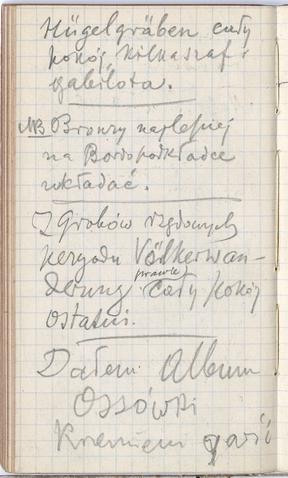 Hügelgräben cały
pokój, kilka szaf i
gablota.
NB Bronzy najlepiej
na Bordo podkładce
wkładać.
Z grobów rzędowych
peryodu Völkerwan-
derung prawie cały pokój
ostatni.
Dałem Album
Ossówki
Kramiem